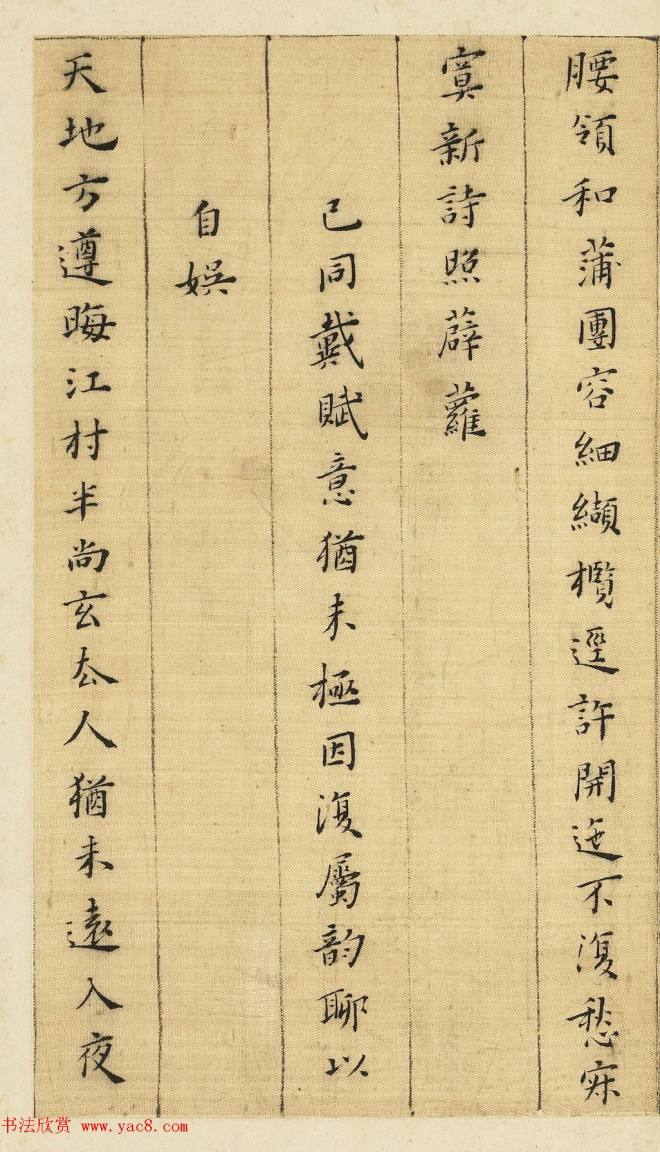 腰領和蒲團容細纈欖逕許開迤不復愁寂
寞新詩照薜蘿
已同戴賦意猶未極因復屬韵聊以
自娱
天地方遵晦江村半尚玄去人猶未遠入夜
书法欣赏 www.yac8.com